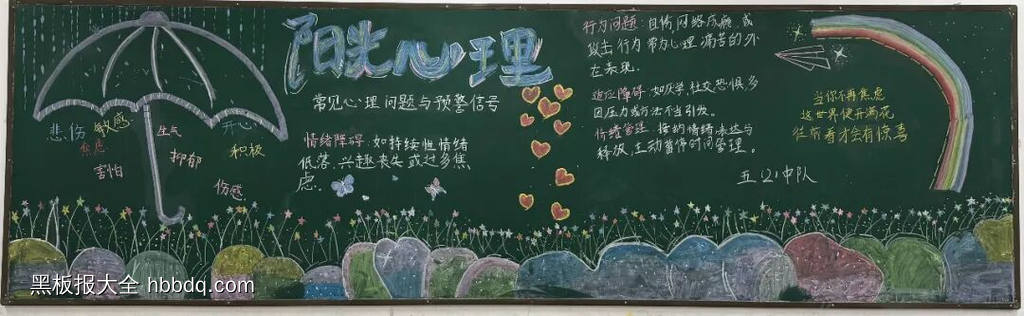 阳光心理
常见心理问题与预警信号
情绪障碍:如持续性情绪
低落、兴趣丧失或过多焦
虑.
悲伤
敏感
焦虑
害怕
生气
抑郁
伤感
开心
积极
行为问题:自伤、网络成瘾或
攻击行为常为心理痛苦的外
在表现.
适应障碍:如厌学、社交恐惧,多
因压力或方法不当引发。
情绪管理:接纳情绪、表达与
释放,主动暂停时间管理。
五(2)中队
当你不再焦虑
这世界便开满花
往前看才会有惊喜
黑板报大全 hbbdq.com